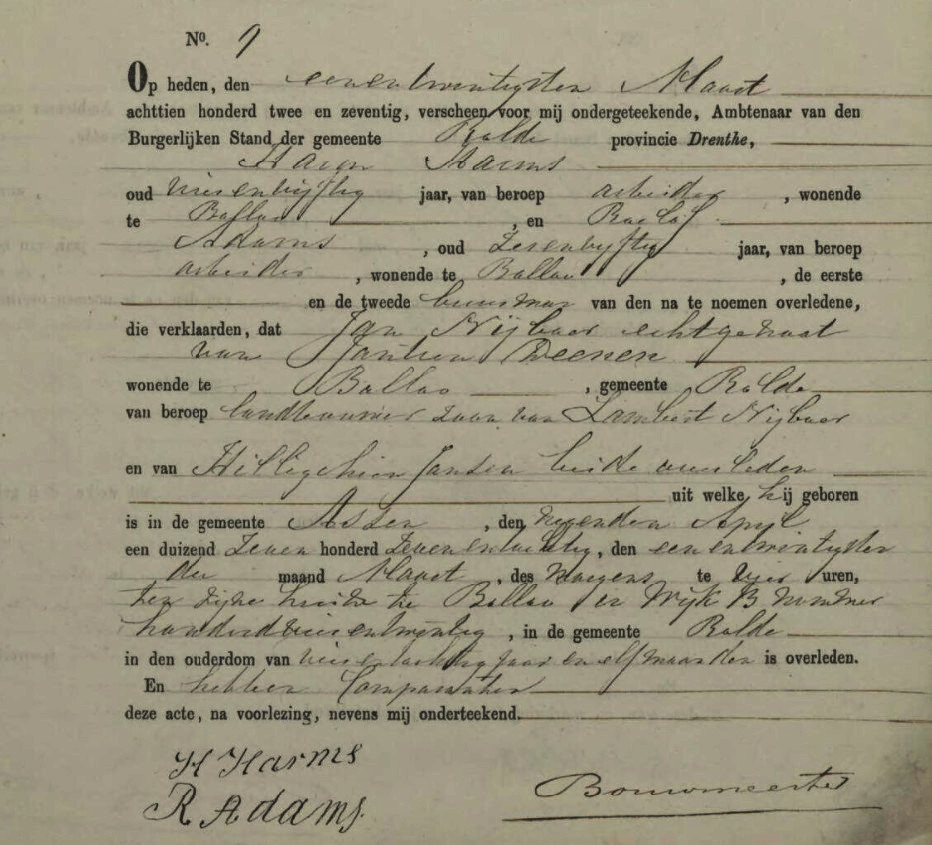 No. 9
Op heden, den eenentwintigsten Maart
achttien honderd twee en zeventig, verscheen voor mij ondergeteekende, Ambtenaar van den
Burgerlijken Stand der gemeente Rolde provincie Drenthe,
Harm Harms
oud vierenvijftig jaar, van beroep arbeider, wonende
te Balloo, en Roelof
Adams, oud zevenvijftig jaar, van beroep
arbeider, wonende te Balloo, de eerste
en de tweede buurman van den na te noemen overledene,
die verklaarden, dat Jan Nijboer echtgenoot
van Jantien Deenen
wonende te Balloo, gemeente Rolde
van beroep landbouwer zoon van Lambert Nijboer
en van Hilligchien Jansen beide overleden
uit welke hij geboren
is in de gemeente Assen, den negenden April
een duizend zeven honderd zevenentachtig, den eenentwintigsten
der maand Maart, des morgens te vier uren,
ten zijne huize te Balloo in Wijk B nummer
honderdvierentwintig, in de gemeente Rolde
in den ouderdom van vierentachtig jaar en elf maanden is overleden.
En hebben Comparanten
deze acte, na voorlezing, nevens mij onderteekend.
H Harms
R Adams.
Bouwmeester